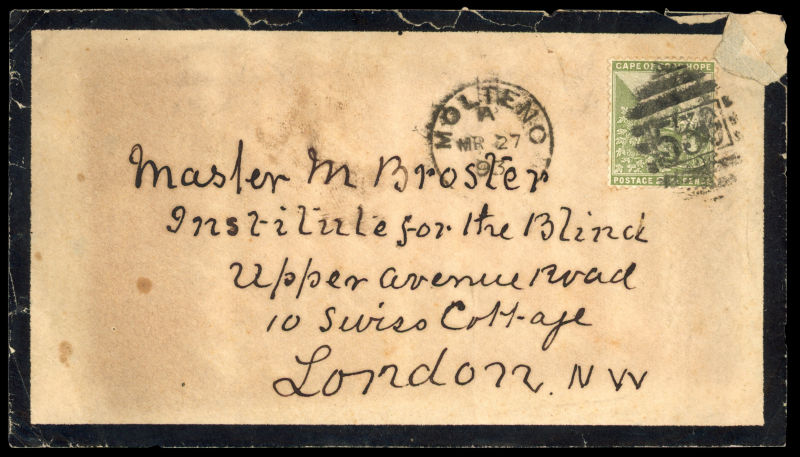 CAPE OF GOOD HOPE
MOLTENO
A
MR 27
93
POSTAGE
Master M Broster
Institute for the Blind
Upper Avenue Road
10 Swiss Cottage
London. NW